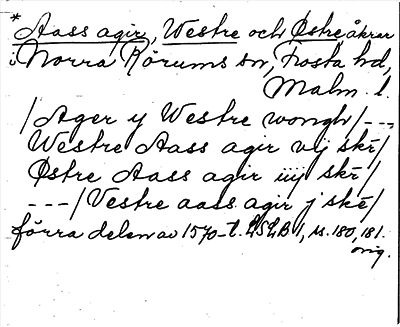 * Aass agir, Westre och Østre åkrar
i Norra Rörums sn, Frosta hd,
Malm. l.
/Ager y Westre wongh/ ---
Westre Aass agir vij skr/
Østre Aass agir iiij skr/
---/Vestre aass agir j skr/
förra delen av 1570-t. LSLB 1, s. 180, 181.
orig.